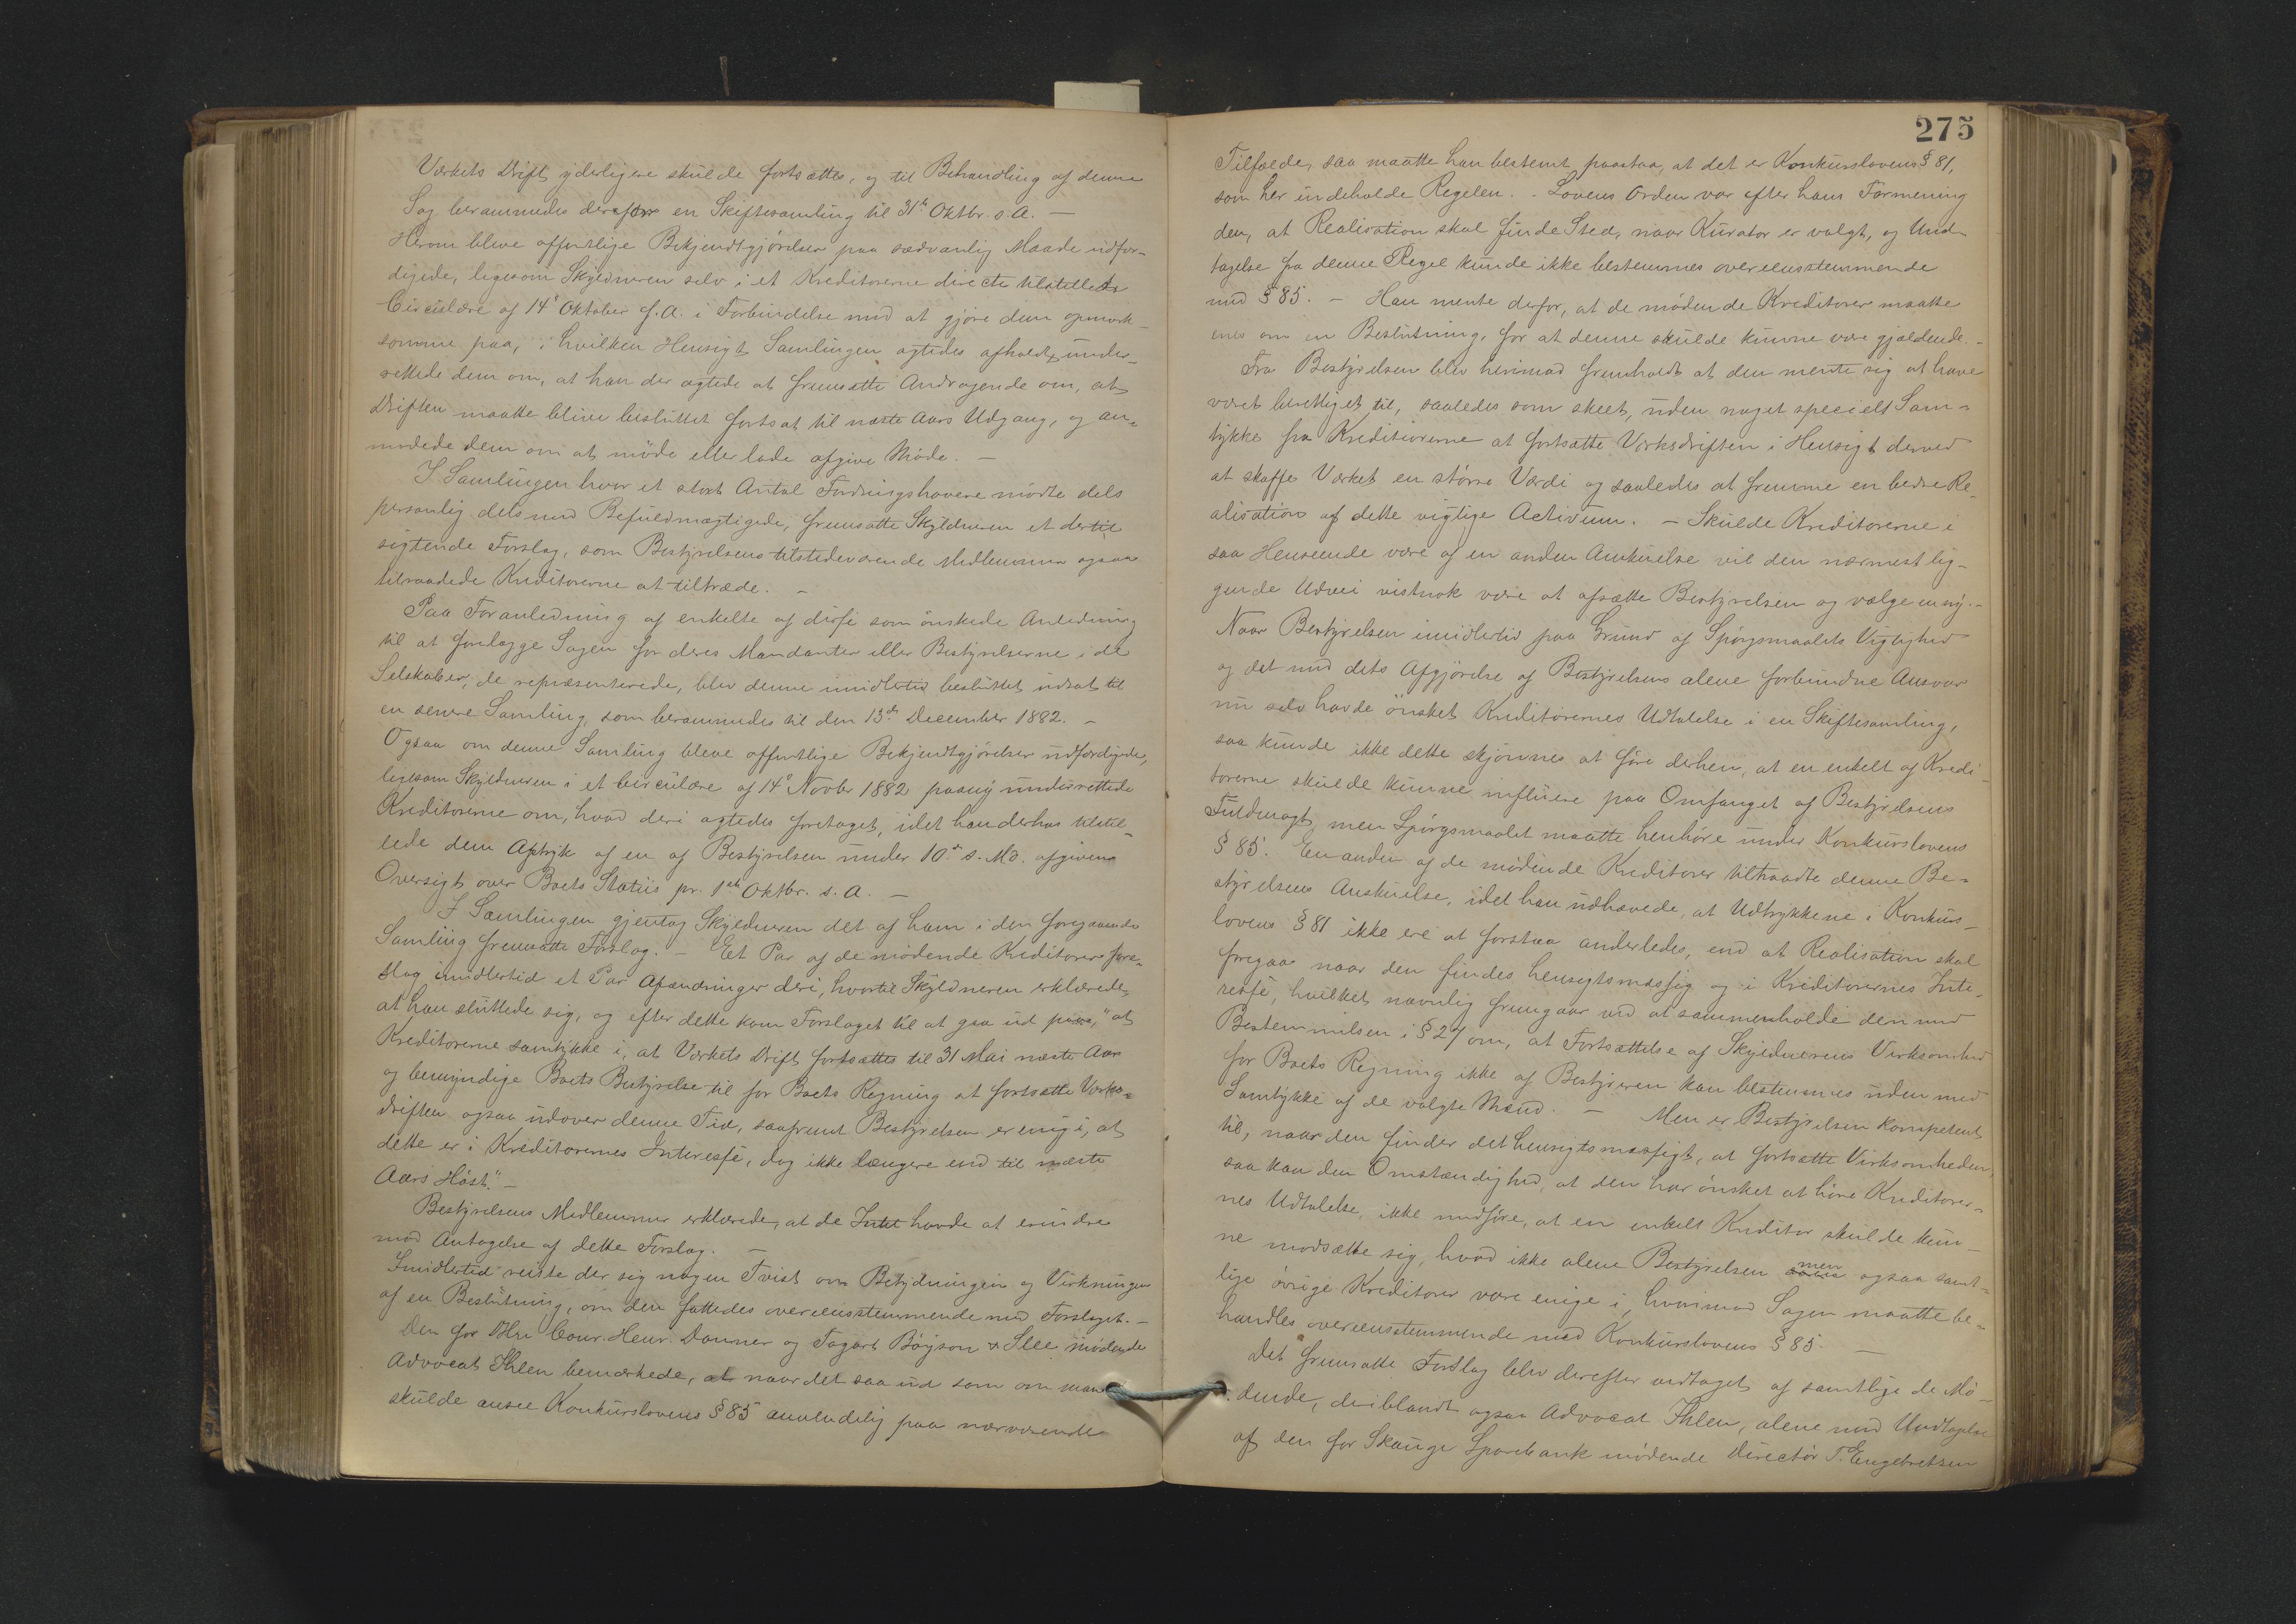 Værkets Drift yderligere skulde fortsættes, og til Behandling af denne
Sag berammedes derefter en Skiftesamling til 31te Oktbr. s. A. —
Herom bleve offentlige Bekjendtgjørelser paa sædvanlig Maade udfær-
digede, ligesom Skyldneren selv i et Kreditorerne directe tilstillede
Circulære af 14de Oktober f. A. i Forbindelse med at gjøre dem opmærk-
somme paa, i hvilken Hensigt Samlingen agtedes afholdt, under-
rettede dem om, at han der agtede at fremsætte Andragende om, at
Driften maatte blive besluttet fortsat til næste Aars Udgang, og an-
modede dem om at møde eller lade afgive Møde. —
I Samlingen hvor et stort Antal Fordringshavere mødte dels
personlig dels med Befuldmægtigede, fremsatte Skyldneren et dertil
sigtende Forslag, som Bestyrelsens tilstedeværende Medlemmer ogsaa
tilraadede Kreditorerne at tiltræde. —
Paa Foranledning af enkelte af disse som ønskede Anledning
til at forelægge Sagen for deres Mandanter eller Bestyrelserne i de
Selskaber, de repræsenterede, blev denne imidlertid besluttet udsat til
en senere Samling, som berammedes til den 13de December 1882. —
Ogsaa om denne Samling bleve offentlige Bekjendtgjørelser udfærdigede,
ligesom Skyldneren i et Circulære af 14de Novbr 1882 paany underrettede
Kreditorerne om, hvad deri agtedes foretaget, idet han derhos tilstil-
lede dem Aftryk af en af Bestyrelsen under 10de s. Md. afgiven
Oversigt over Boets Status pr. 1ste Oktbr. s. A. —
I Samlingen gjentog Skyldneren det af ham i den foregaaende
Samling fremsatte Forslag. — Et Par af de mødende Kreditorer fore-
slog imidlertid et Par Afændringer deri, hvortil Skyldneren erklærede,
at han sluttede sig, og efter dette kom Forslaget til at gaa ud paa, "at
Kreditorerne samtykke i, at Værkets Drift fortsættes til 31 Mai næste Aar
og bemyndige Boets Bestyrelse til for Boets Regning at fortsætte Værks-
driften ogsaa udover denne Tid, saafremt Bestyrelsen er enig i, at
dette er i Kreditorernes Interesse, dog ikke længere end til næste
Aars Høst." —
Bestyrelsens Medlemmer erklærede, at de Intet havde at erindre
mod Antagelse af dette Forslag. —
Imidlertid reiste der sig nogen Tvist om Betydningen og Virkningen
af en Beslutning, om den fattedes overeensstemmende med Forslaget. —
Den for Hrr Conr. Henr. Donner og Tagart Böyson & Slee mødende
Advocat Ihlen bemærkede, at naar det saa ud som om man
skulde ansee Konkurslovens § 85 anvendelig paa nærværende
275
Tilfælde, saa maatte han bestemt paastaa, at det er Konkurslovens § 81,
som her indeholde Regelen. - Lovens Orden var efter hans Formening
den, at Realisation skal finde Sted, naar Kurator er valgt, og Und-
tagelse fra denne Regel kunde ikke bestemmes overeensstemmende
med § 85. — Han mente derfor, at de mødende Kreditorer maatte
enes om en Beslutning, for at denne skulde kunne være gjældende. -
Fra Bestyrelsen blev herimod fremholdt at den mente sig at have
været berettiget til, saaledes som skeet, uden noget specielt Sam-
tykke fra Kreditorerne at fortsætte Værksdriften i Hensigt derved
at skaffe Værket en større Værdi og saaledes at fremme en bedre Re-
alisation af dette vigtige Activum. — Skulde Kreditorerne i
saa Henseende være af en anden Anskuelse vil den nærmest lig-
gende Udvei vistnok være at afsætte Bestyrelsen og vælge en ny. -
Naar Bestyrelsen imidlertid paa Grund af Spørgsmaalets Vigtighed
og det med dets Afgjørelse af Bestyrelsens alene forbundne Ansvar
nu selv havde ønsket Kreditorernes Udtalelse i en Skiftesamling,
saa kunde ikke dette skjønnes at føre derhen, at en enkelt af Kredi-
torerne skulde kunne influere paa Omfanget af Bestyrelsens
Fuldmagt, men Spørgsmaalet maatte henhøre under Konkurslovens
§ 85. En anden af de mødende Kreditorer tiltraadte denne Be-
styrelsens Anskuelse, idet han udhævede, at Udtrykkene i Konkurs-
lovens § 81 ikke ere at forstaa anderledes, end at Realisation skal
foregaa naar den findes hensigtsmæssig og i Kreditorernes Inte-
resse, hvilket navnlig fremgaar ved at sammenholde den med
Bestemmelsen i § 27 om, at Fortsættelse af Skyldnerens Virksomhed
for Boets Regning ikke af Bestyreren kan bestemmes uden med
Samtykke af de valgte Mænd. — Men er Bestyrelsen kompetent
til, naar den finder det hensigtsmæssigt, at fortsætte Virksomheden,
saa kan den Omstændighed, at den har ønsket at høre Kreditorer-
nes Udtalelse, ikke medføre, at en enkelt Kreditor skulde kun-
ne modsætte sig, hvad ikke alene Bestyrelsen men ogsaa samt-
lige øvrige Kreditorer vare enige i, hvorimod Sagen maatte be-
handles overeensstemmende med Konkurslovens § 85. —
Det fremsatte Forslag blev derefter vedtaget af samtlige de Mø-
dende, deriblandt ogsaa Advocat Ihlen, alene med Undtagelse
af den for Skauger Sparebank mødende Directør T. Engebretsen